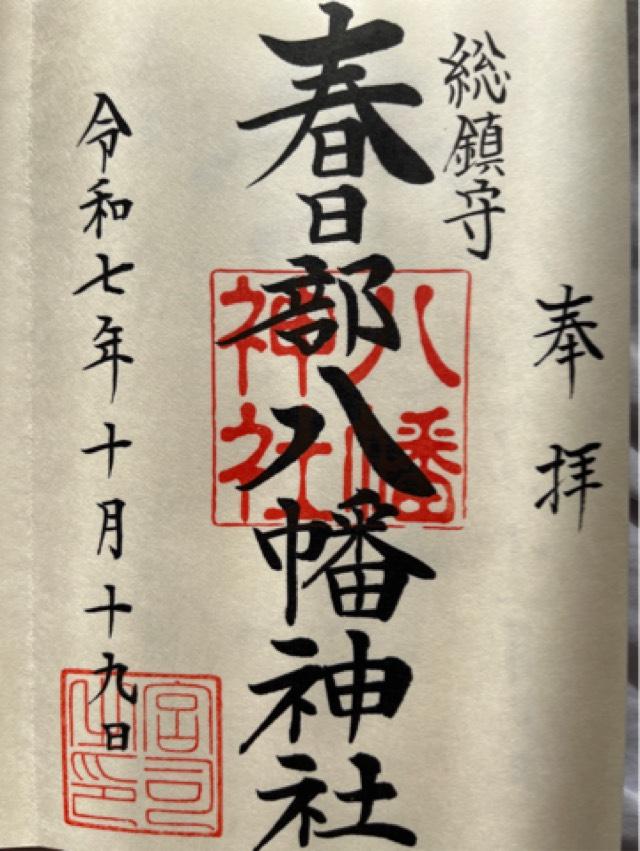 奉拝
総鎮守
春日部八幡神社
八幡神社
令和七年十月十九日
宮司之印